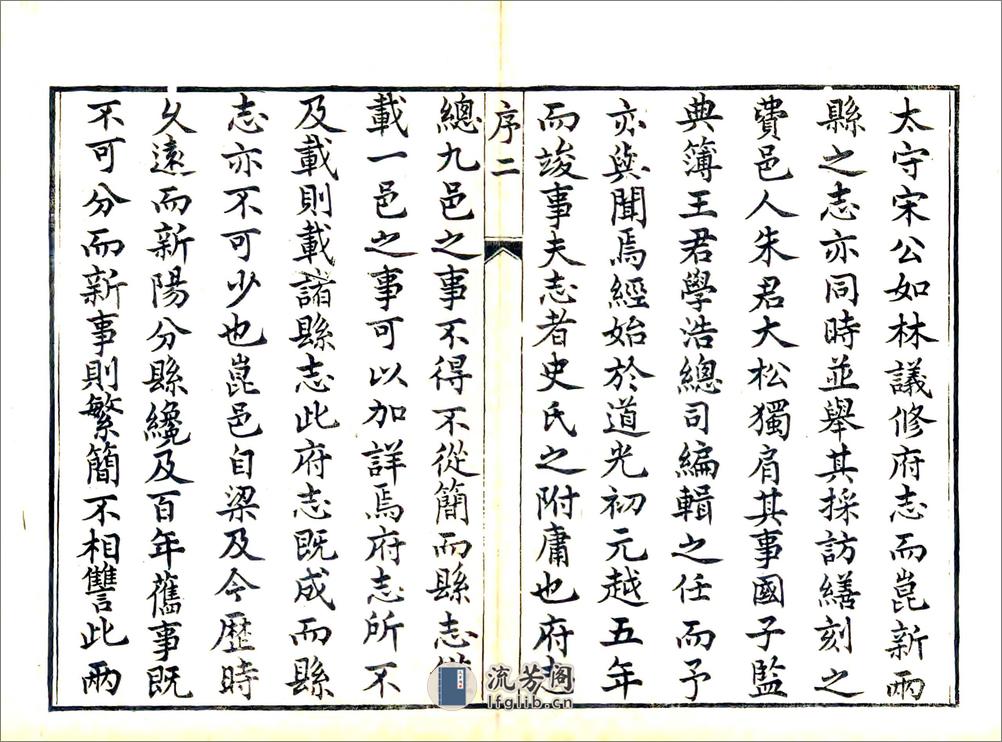 太守宋公如林議修府志而崑新兩
縣之志亦同時並舉其採訪繕刻之
費邑人朱君大松獨肩其事國子監
典簿王君學浩總司編輯之任而予
亦與聞焉經始於道光初元越五年
而竣事夫志者史氏之附庸也府志
序二
總九邑之事不得不從簡而縣志
載一邑之事可以加詳焉府志所不
及載則載諸縣志此府志既成而縣
志亦不可少也崑邑自梁及今歷時
久遠而新陽分縣纔及百年舊事既
不可分而新事則繁簡不相讐此兩
流芳阁
lfglib.cn